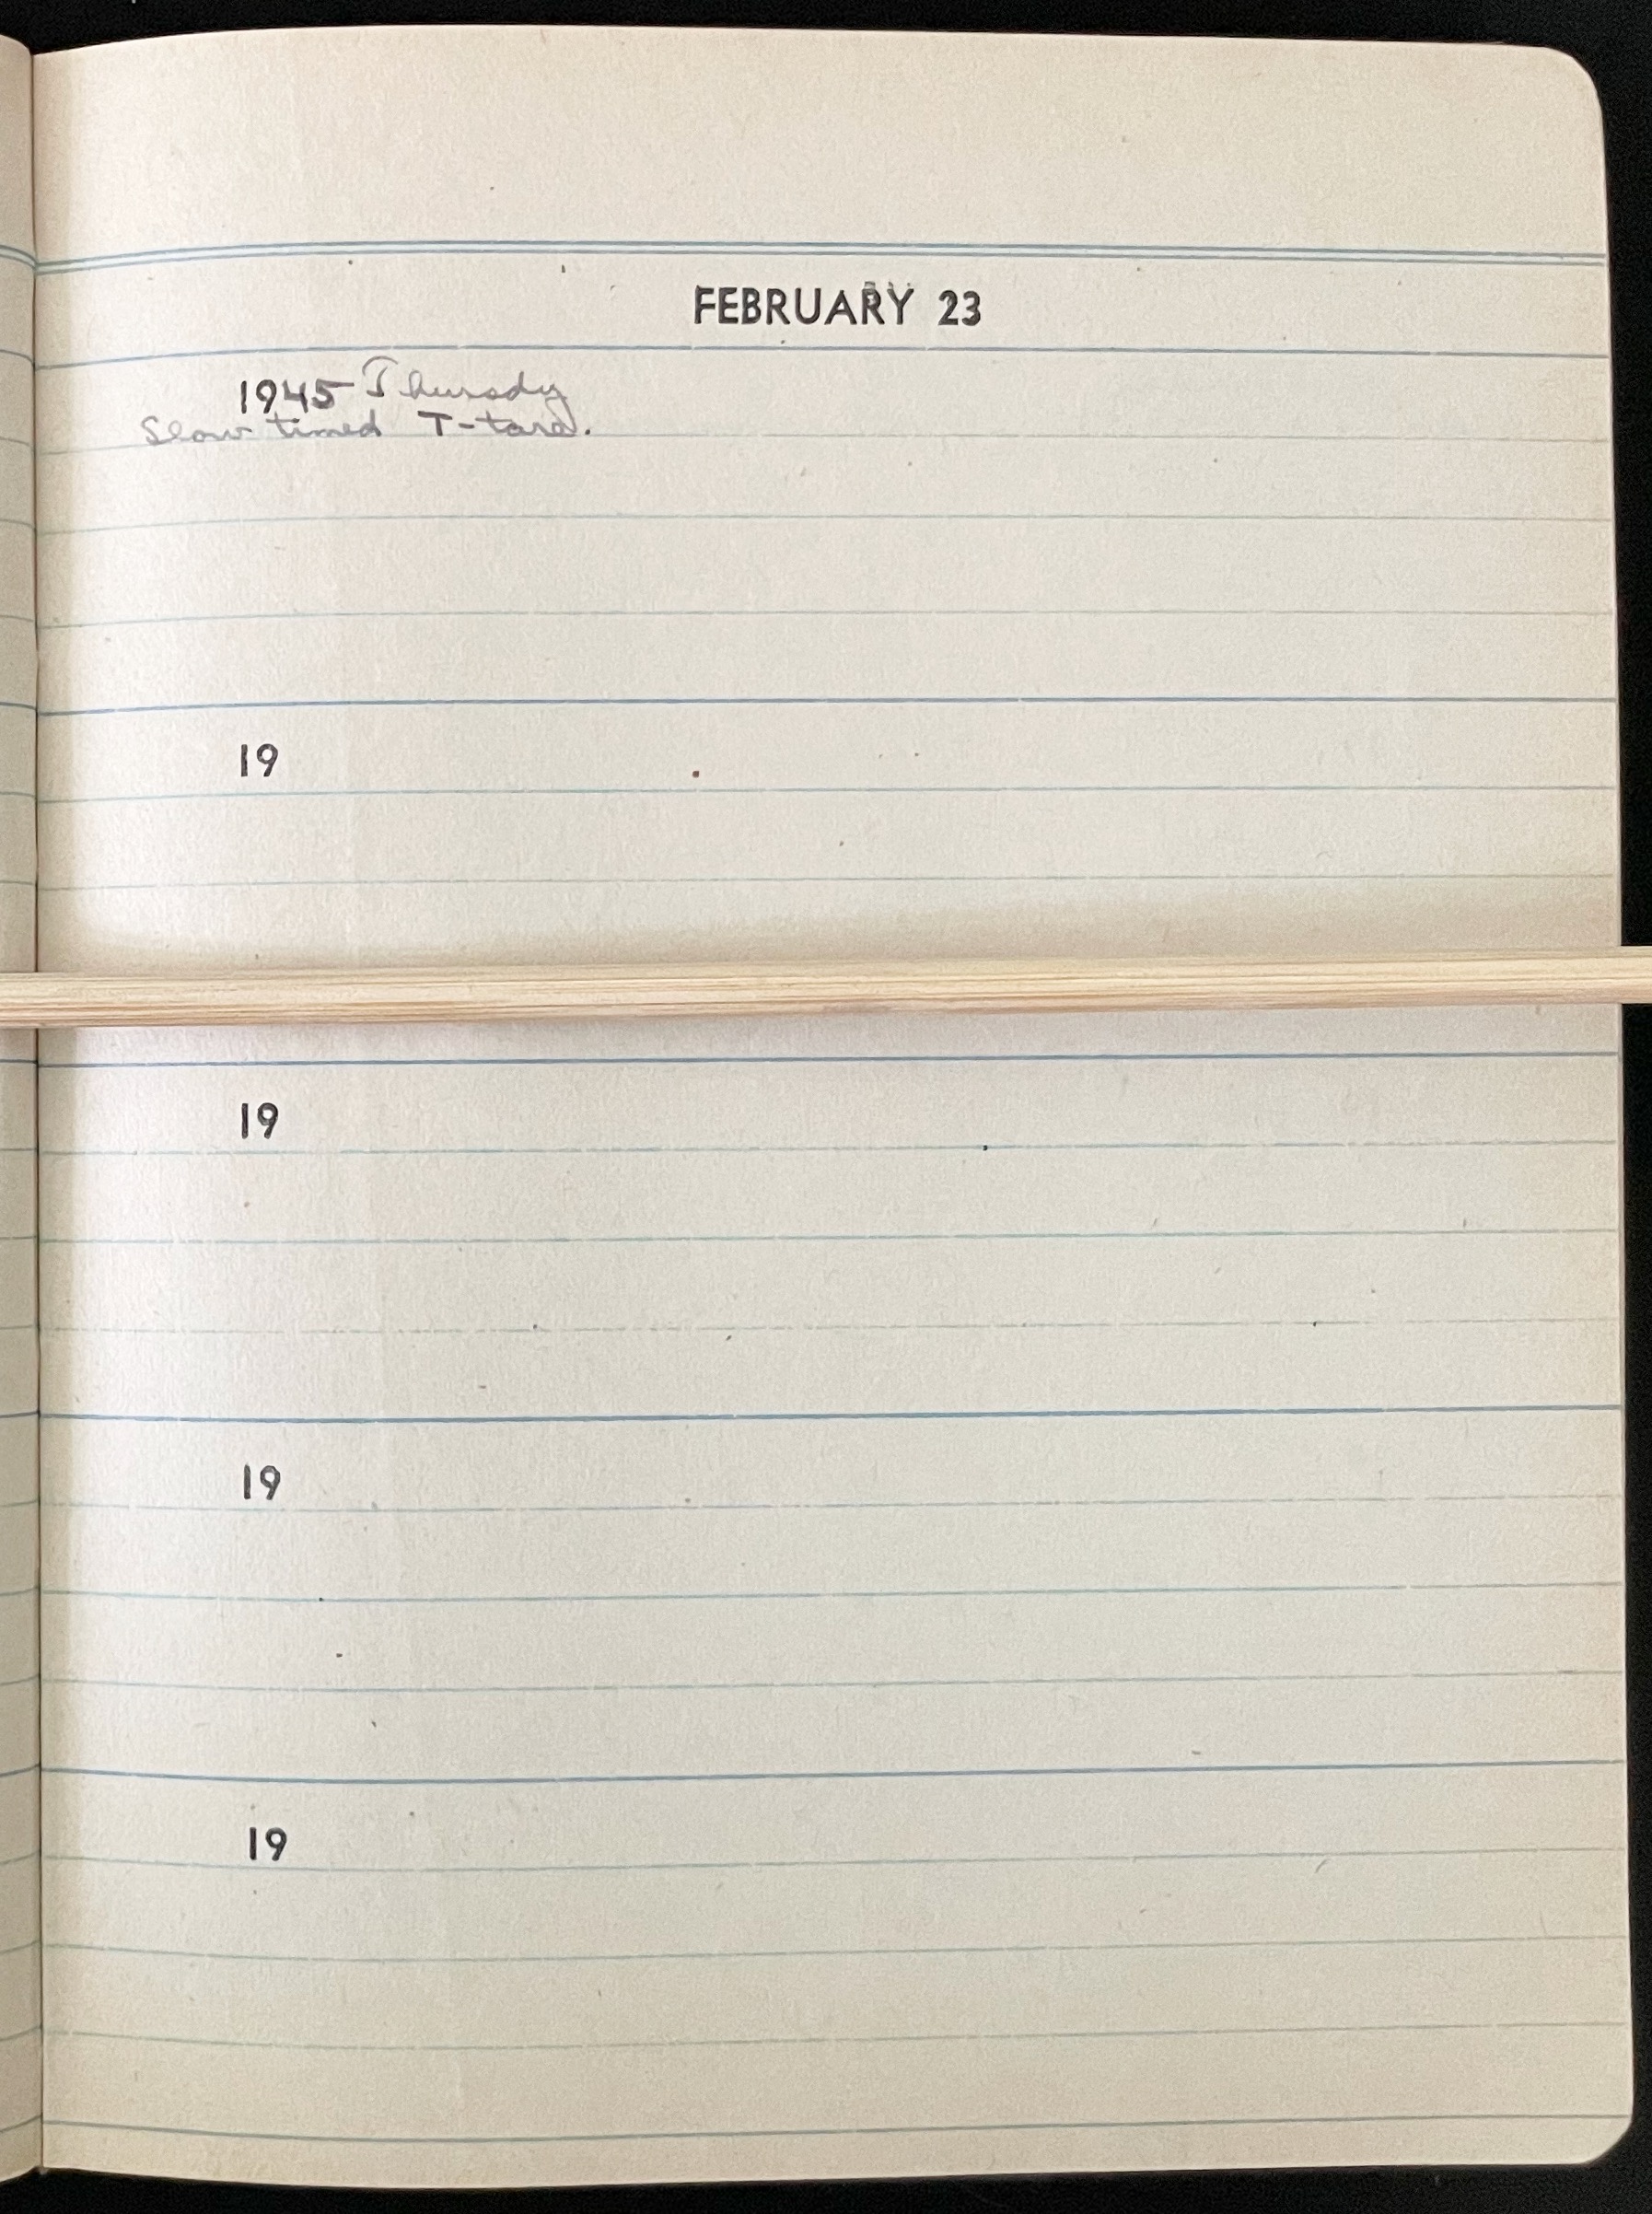 FEBRUARY 23
1945 Thursdy
Slow timed T-tard.
19
19
19
19